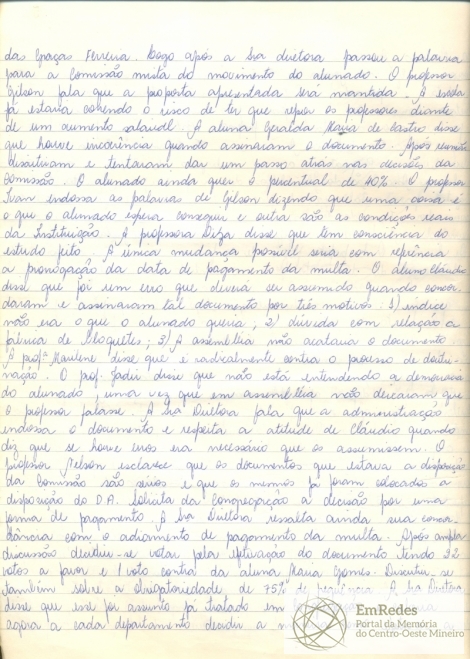 das Graças Ferreira. Logo após a Sra diretora passou a palavra
para a Comissão mista do movimento do alunado. O professor
Gilson fala que a proposta apresentada será mantida. A escola
já estaria correndo o risco de ter que repor os professores diante
de um aumento salarial. A aluna Geralda Maria de Castro disse
que houve incoerência quando assinaram o documento. Após reunirem
discutiram e tentaram dar um passo atrás nas decisões da
Comissão. O alunado ainda quer o percentual de 40%. O professor
Ivan endossa as palavras de Gilson dizendo que uma coisa é
o que o alunado espera conseguir e outra são as condições reais
da Instituição. A professora Dilza disse que tem consciência do
estudo feito. A única mudança possível seria com referência
a prorrogação da data de pagamento da multa. O aluno Cláudio
disse que foi um erro que deveria ser assumido quando concor-
daram e assinaram tal documento por três motivos: 1) índice
não era o que o alunado queria; 2) dúvida com relação a
2) A assembléia não acataria o documento.
A profª Maurlene disse que é radicalmente contra o processo de
O prof. Jadir disse que não está entendendo a democracia
do alunado, uma vez que em assembléia não deixaram que
o professor falasse. A Sra Diretora fala que a administração
endossa o documento e respeita a atitude de Cláudio quando
diz que se houve erros era necessário que os assumissem. O
professor Nelson esclarece que os documentos que estava a disposição
da Comissão são sérios e que os mesmos já foram colocados à
disposição do D.A. Solicita da Congregação a decisão por uma
forma de pagamento. A Sra Diretora ressalta ainda sua concor-
dância com o adiamento de pagamento da multa. Após ampla
discussão decidiu-se votar pela efetivação do documento tendo 32
votos a favor e 1 voto contra da aluna Maria Gomes. Discutiu-se
também sobre a obrigatoriedade de 75% de freqüência. A Sra Diretora
disse que esse foi assunto já tratado em
agora a cada departamento decidir a
EmRedes
Portal da Memória
do Centro-Oeste Mineiro